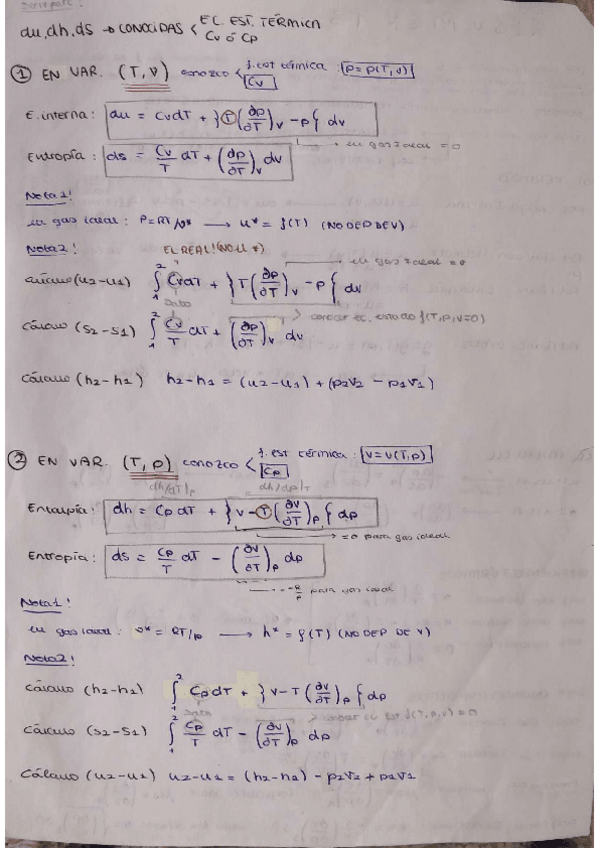 du, dh, ds → CONOCIDAS < EC. EST. TÉRMICA
Cv ó Cp
① EN VAR. (T, V) conozco < f. est térmica : p = p(T, v)
Cv
E. interna : du = CvdT + }T(∂p/∂T)v - p{ dv
en gas ideal = 0
Entropía : ds = Cv/T dT + (∂p/∂T)v dv
Nota 1!
en gas ideal : P = RT/v* → u* = f(T) (NO DEP DE V)
Nota 2! EL REAL! (NO U *)
en gas ideal = 0
Cálculo (u2-u1) ∫₁² CvdT + }T(∂p/∂T)v - p{ dv
dato
Cálculo (s2-s1) ∫₁² Cv/T dT + (∂p/∂T)v dv
> conocer ec. estado f(T, p, v=0)
Cálculo (h2-h1) h2-h1 = (u2-u1) + (p2v2 - p1v1)
② EN VAR. (T, p) conozco < f. est térmica : v = v(T, p)
Cp
dh/dT)p dh/dp)T
Entalpía : dh = Cp dT + }v - T(∂v/∂T)p{ dp
= 0 para gas ideal
Entropía : ds = Cp/T dT - (∂v/∂T)p dp
-R/p para gas ideal
Nota 1!
en gas ideal : v* = RT/p → h* = f(T) (NO DEP DE V)
Nota 2!
Cálculo (h2-h1) ∫₁² Cp dT + }v - T(∂v/∂T)p{ dp
dato
> conocer ec est f(T, p, v) = 0
Cálculo (s2-s1) ∫₁² Cp/T dT - (∂v/∂T)p dp
Cálculo (u2-u1) u2-u1 = (h2-h1) - p2v2 + p1v1